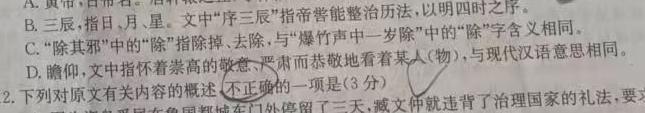 B. 三辰,指日、月、星。文中“序三辰”指帝喾能整治历法,以明四时之序。
C. “除其邪”中的“除”指除掉、去除,与“爆竹声中一岁除”中的“除”字含义相同。
D. 瞻仰,文中指怀着崇高的敬意、严肃而恭敬地看着某人(物),与现代汉语意思相同。
2. 下列对原文有关内容的概述,不正确的一项是(3分)
国都城东门外停留了三天,臧文仲就违背了治理国家的礼法,要求